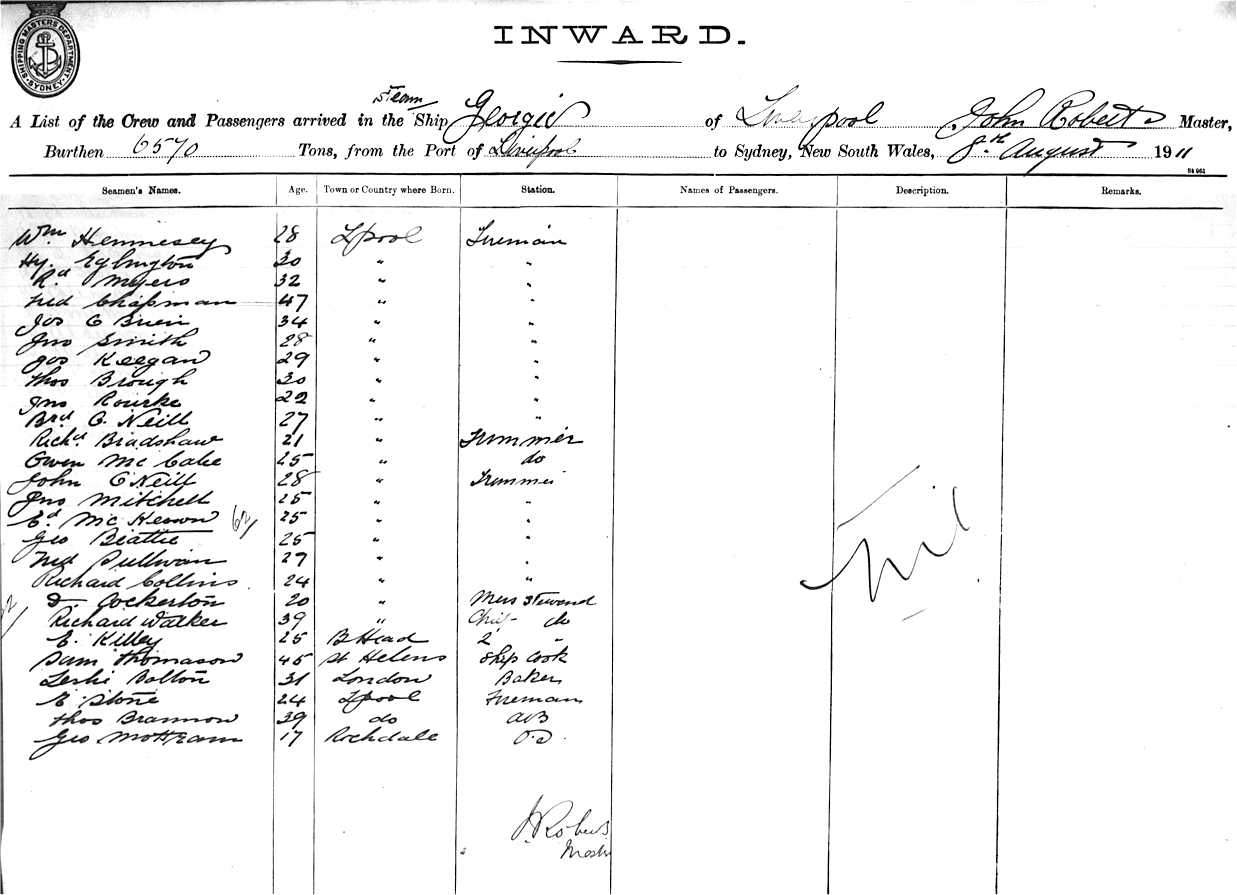 SHIPPING MASTERS DEPARTMENT SYDNEY
INWARD.
Steam
A List of the Crew and Passengers arrived in the Ship Georgic of Liverpool John Roberts Master,
Burthen 6570 Tons, from the Port of Liverpool to Sydney, New South Wales, 8th August 1911
Seamen's Names. Age. Town or Country where Born. Station. Names of Passengers. Description. Remarks.
Wm Hennesey 28 Lpool Fireman
Hy. Eglington 30 " "
Rd Myers 32 " "
Fred Chapman 47 " "
Jos O Brien 34 " "
Jno Smith 28 " "
Jos Keegan 29 " "
Thos Brough 30 " "
Jno Rourke 22 " "
Brd O. Neill 27 " "
Richd Bradshaw 21 " Trimmer
Owen Mc Cabe 25 " do
John O'Neill 28 " Trimmer
Jno Mitchell 25 " "
Ed Mc Keown 62/ 25 " "
Geo Beattie 25 " "
Fred Sullivan 27 " "
Richard Collins 24 " "
Cockerton 20 " Mess Steward
Richard Walker 39 " Chief do
E. Killey 25 B Head 2 "
Sam Thomason 45 St Helens Ship Cook
Leslie Dalton 31 London Baker
E Stone 24 Lpool Fireman
Thos Brannon 39 do AB
Geo Mottram 17 Rochdale O.S.
Nil
J Roberts
Master